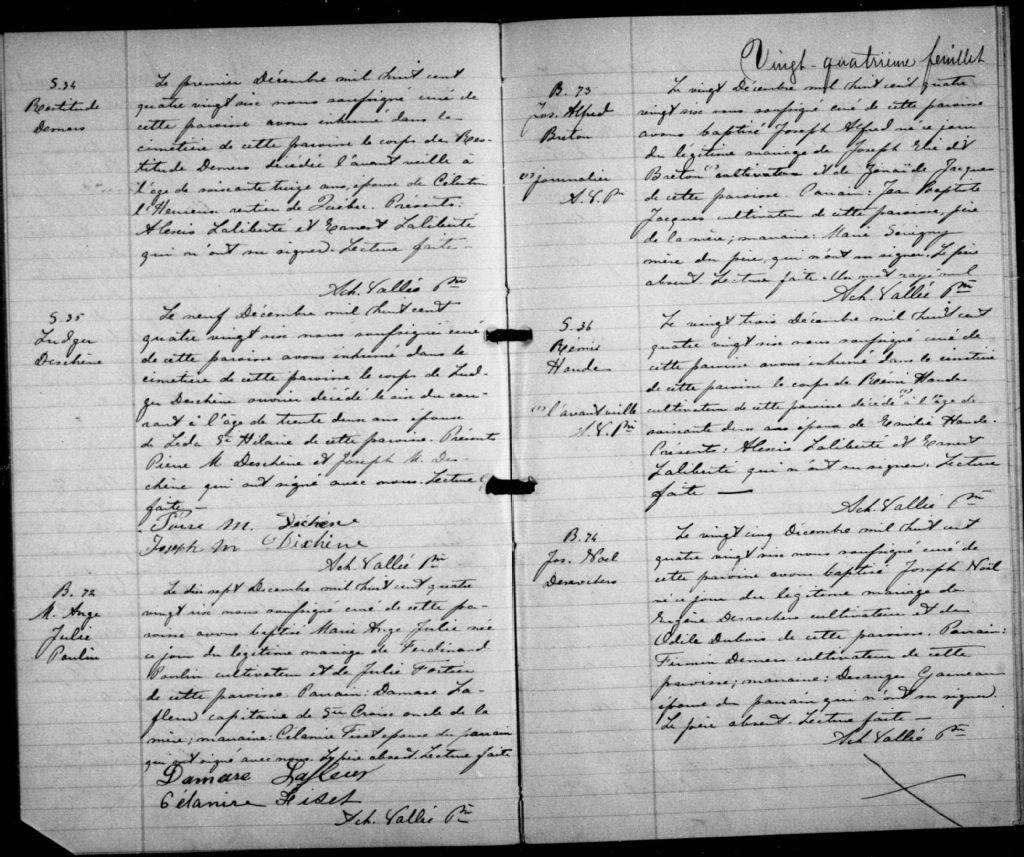 S. 34
Rectitude
Demers
Le premier Décembre mil huit cent
quatre vingt six nous soussigné curé de
cette paroisse avons inhumé dans le
cimetière de cette paroisse le corps de Rec-
titude Demers décédée l'avant veille à
l'âge de soixante treize ans, épouse de Célestin
l'Heureux rentier de Québec. Présents:
Alexis Laliberté et Ernest Laliberté
qui n'ont su signer. Lecture faite
Ach. Vallée Ptre
S. 35
Ludger
Deschêne
Le neuf Décembre mil huit cent
quatre vingt six nous soussigné curé
de cette paroisse avons inhumé dans le
cimetière de cette paroisse le corps de Lud-
ger Deschêne ouvrier décédé le six du cou-
rant à l'âge de trente deux ans époux
de Léda St Hilaire de cette paroisse. Présents
Pierre M. Deschêne et Joseph M. Des-
chêne qui ont signé avec nous. Lecture
faite -
M. Dechêne
Joseph M Dechêne
Ach Vallée Ptre
B. 72
M. Ange
Julie
Paulin
Le dix sept Décembre mil huit cent quatre
vingt six nous soussigné curé de cette pa-
roisse avons baptisé Marie Ange Julie née
ce jour du légitime mariage de Ferdinand
Paulin cultivateur et de Julie Fortier
de cette paroisse. Parrain: Damase La-
fleur capitaine de Ste Croix oncle de la
mère; marraine: Célanire Fiset épouse du parrain
qui ont signé avec nous. Le père absent. Lecture faite
Damase Lafleur
Célanire Fiset
Ach. Vallée Ptre
Vingt-quatrième feuillet
B. 73
Jos. Alfred
Breton
(1) journalier
A. V. Ptre
Le vingt Décembre mil huit cent quatre
vingt six nous soussigné curé de cette paroisse
avons baptisé Joseph Alfred né ce jour
du légitime mariage de Joseph Elie dit
Breton (1) cultivateur et de Zénaïde Jacques
de cette paroisse. Parrain: Jean Baptiste
Jacques cultivateur de cette paroisse, père
de la mère; marraine: Marie Savigny
mère du père, qui n'ont su signer. Le père
absent. Lecture faite. Un mot rayé nul
Ach. Vallée Ptre
S. 36
Rémi
Hamde
(1) l'avant veille
A. V. Ptre
Le vingt trois Décembre mil huit cent
quatre vingt six nous soussigné curé de
cette paroisse avons inhumé dans le cimetière
de cette paroisse le corps de Rémi Hamde
cultivateur de cette paroisse décédé (1) à l'âge de
soixante deux ans époux de Emilie Hamde.
Présents: Alexis Laliberté et Ernest
Laliberté qui n'ont su signer. Lecture
faite —
Ach Vallée Ptre
B. 74
Jos. Noël
Desrochers
Le vingt cinq Décembre mil huit cent
quatre vingt six nous soussigné curé de
cette paroisse avons baptisé Joseph Noël
né ce jour du légitime mariage de
Eugène Desrochers cultivateur et de
Odile Dubois de cette paroisse. Parrain:
Firmin Demers cultivateur de cette
paroisse; marraine: Desanges Garneau
épouse du parrain qui n'ont su signer.
Le père absent. Lecture faite —
Ach Vallée Ptre